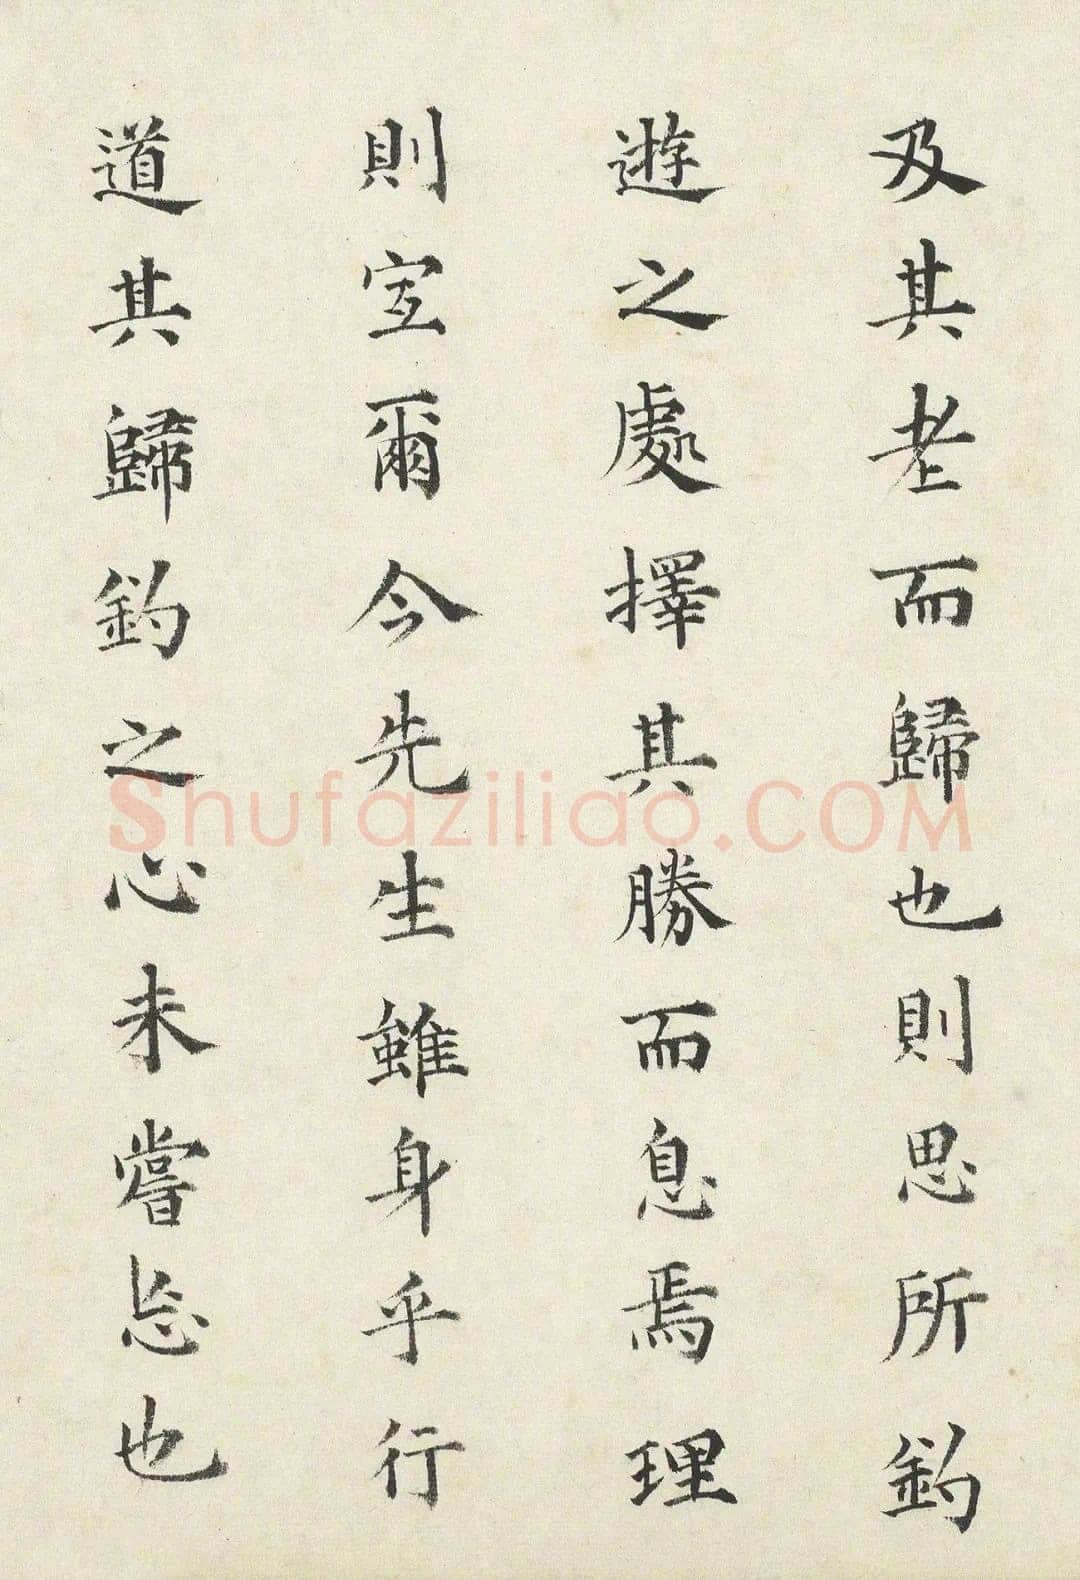 及其老而歸也則思所釣
遊之處擇其勝而息焉理
則宐爾今先生雖身乎行
道其歸釣之心未嘗忘也
Shufaziliao.COM